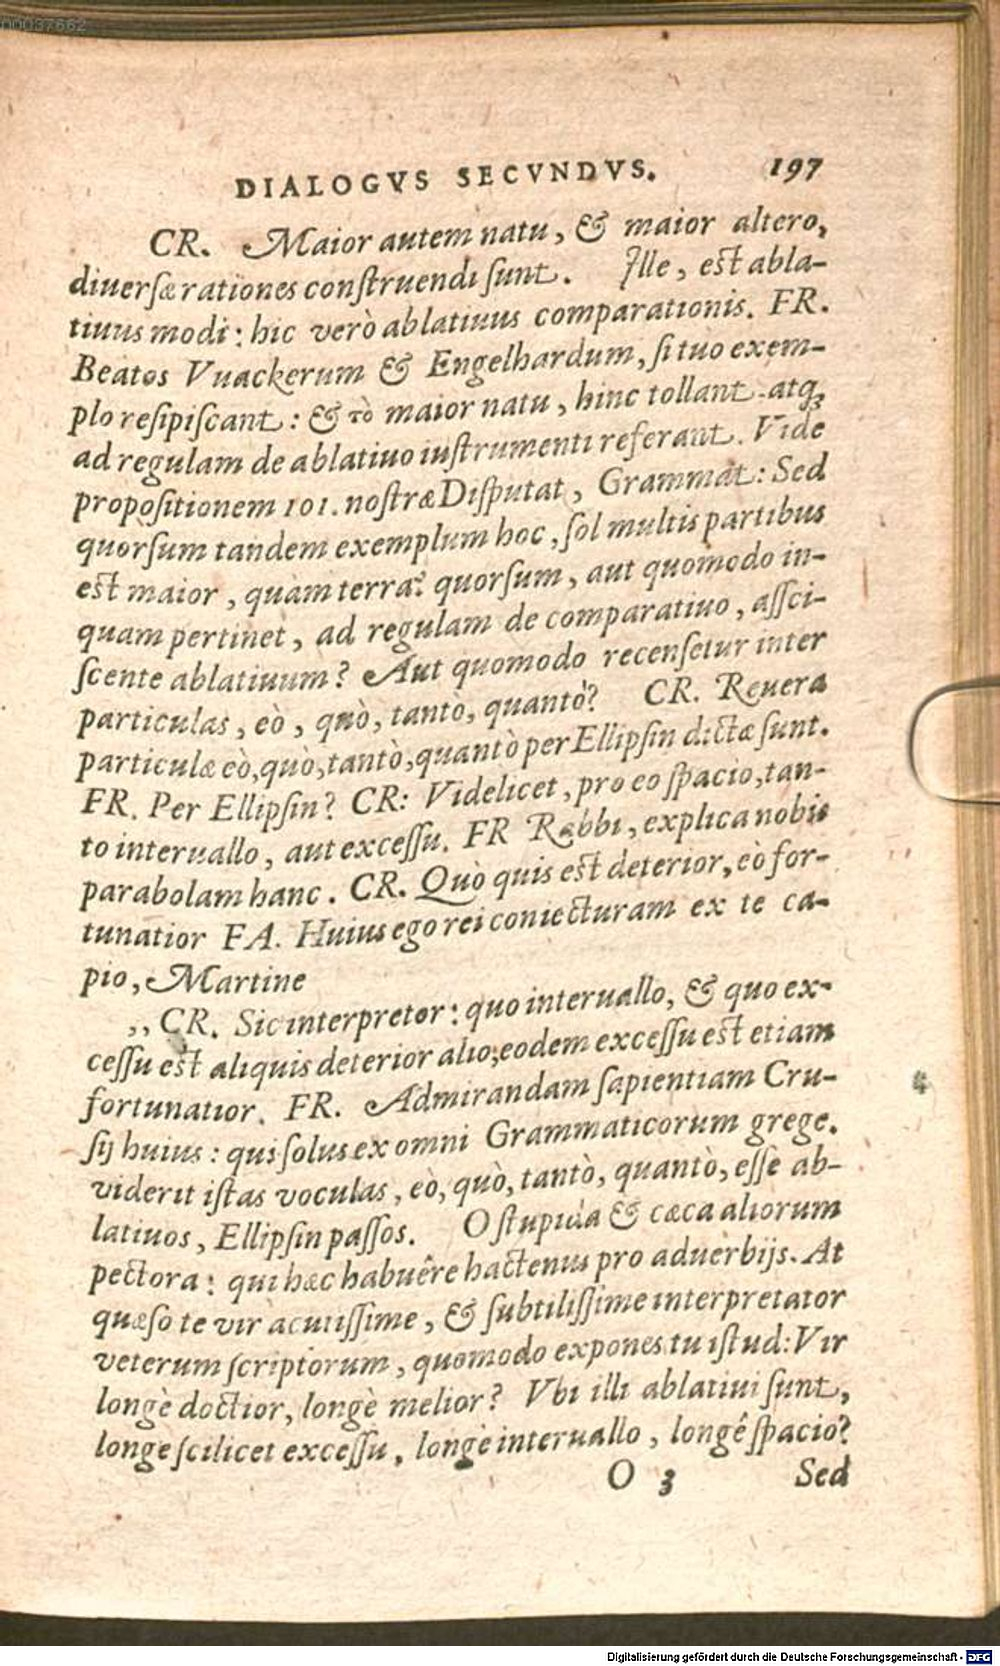 00037662
DIALOGVS SECVNDVS. 197
CR. Maior autem natu, & maior altero,
diuersæ rationes construendi sunt. Ille, est abla-
tiuus modi: hic verò ablatiuus comparationis. FR.
Beatos Vuackerum & Engelhardum, si tuo exem-
plo resipiscant: & τὸ maior natu, hinc tollant atq;
ad regulam de ablatiuo iustrumenti referant. Vide
propositionem 101. nostræ Disputat, Grammat: Sed
quòrsum tandem exemplum hoc, sol multis partibus
est maior, quam terra? quorsum, aut quomodo in-
quam pertinet, ad regulam de comparatiuo, assci-
scente ablatiuum? Aut quomodo recensetur inter
particulas, eò, quò, tantò, quantò? CR. Reuera
particulæ eò, quò, tantò, quantò per Ellipsin dictæ sunt.
FR. Per Ellipsin? CR: Videlicet, pro eo spacio, tan-
to interuallo, aut excessu. FR Rabbi, explica nobis
parabolam hanc. CR. Quò quis est deterior, eò for-
tunatior FA. Huius ego rei coniecturam ex te ca-
pio, Martine
,, CR. Sic interpretor: quo interuallo, & quo ex-
cessu est aliquis deterior alio, eodem excessu est etiam
fortunatior. FR. Admirandam sapientiam Cru-
sij huius: qui solus ex omni Grammaticorum grege.
viderit istas voculas, eò, quò, tantò, quantò, esse ab-
latiuos, Ellipsin passos. O stupida & cæca aliorum
pectora: qui hæc habuêre hactenus pro aduerbijs. At
quæso te vir acutissime, & subtilissime interpretator
veterum scriptorum, quomodo expones tu istud: Vir
longè doctior, longè melior? Vbi illi ablatiui sunt,
longe scilicet excessu, longè interuallo, longê spacio?
O 3 Sed
Digitalisierung gefördert durch die Deutsche Forschungsgemeinschaft - DFG